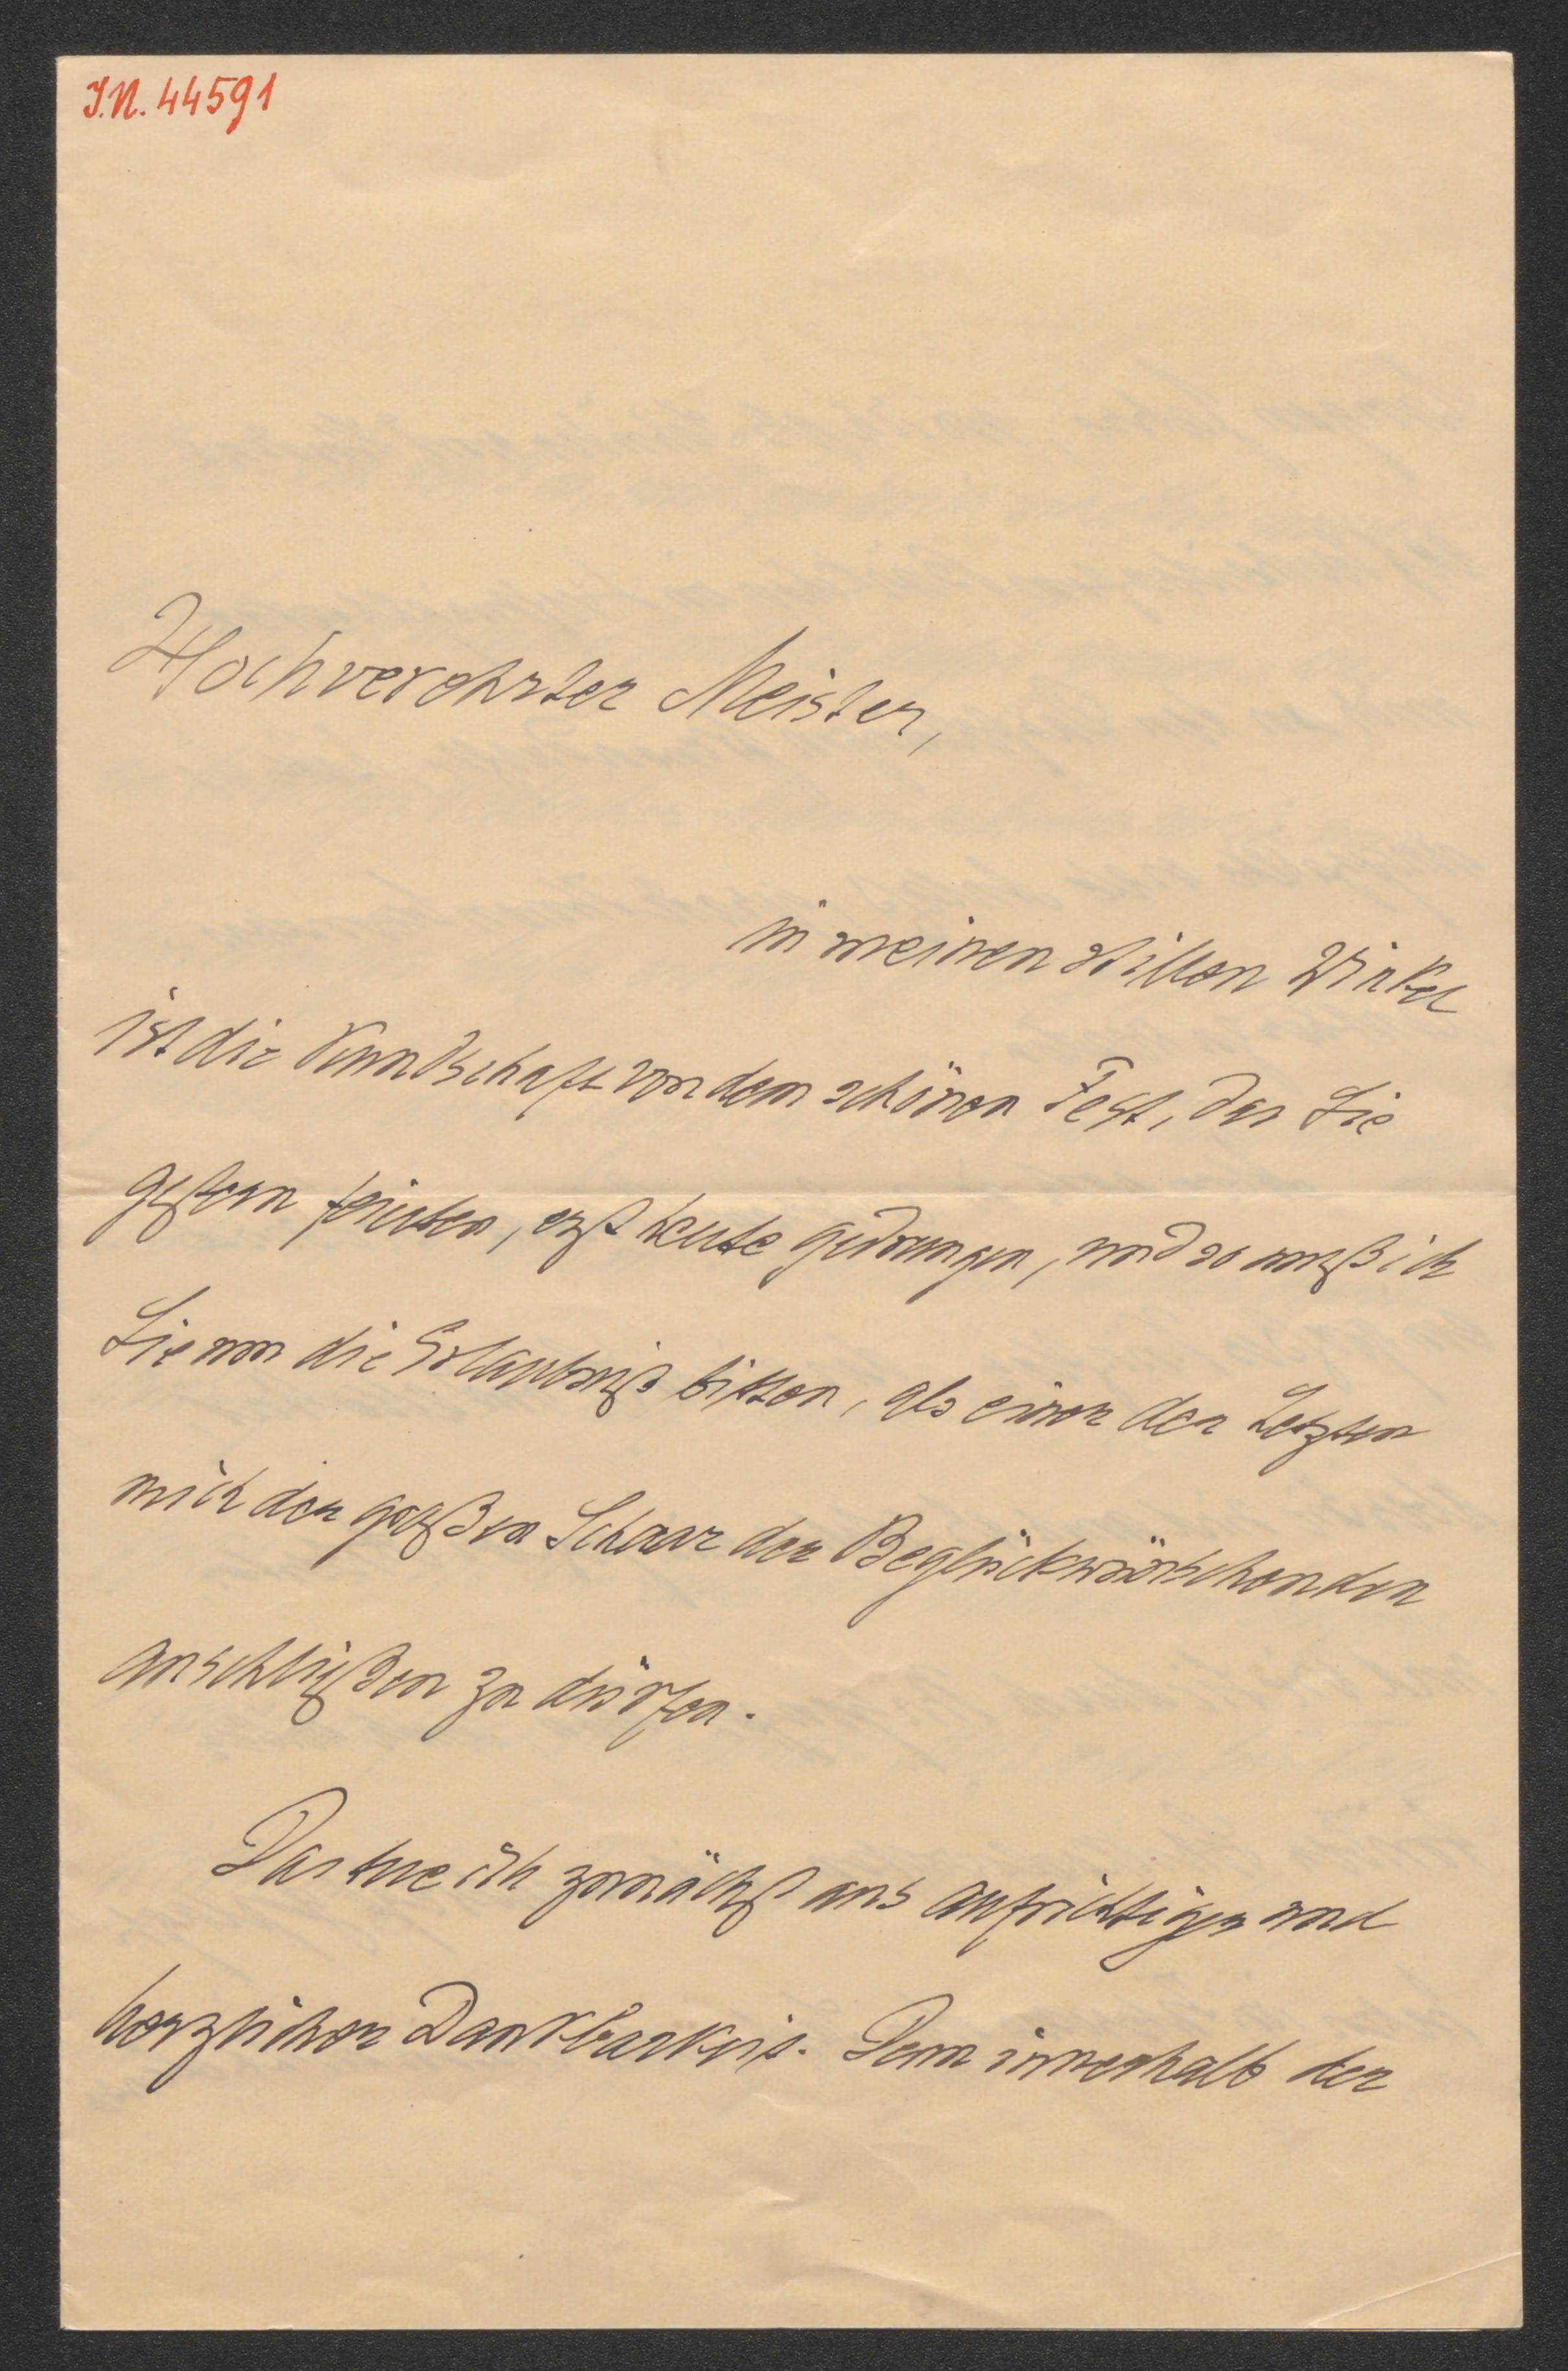 J.N. 44591
Hochverehrter Meister,
in meinen stillen Winkel
ist die Kundschaft von dem schönen Fest, das Sie
gestern feierten, erst heute gedrungen, und so muß ich
Sie um die Erlaubniß bitten, als einer der Letzten
mich der großen Schaar der Beglückwünschenden
anschließen zu dürfen.
Das tue ich zunächst aus aufrichtiger und
herzlicher Dankbarkeit. Denn innerhalb der